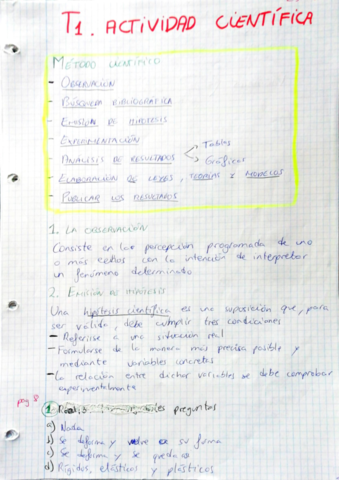 T1. ACTIVIDAD CIENTÍFICA
MÉTODO CIENTÍFICO
- OBSERVACIÓN
- BÚSQUEDA BIBLIOGRÁFICA
- EMISIÓN DE HIPÓTESIS
- EXPERIMENTACIÓN
- ANÁLISIS DE RESULTADOS
Tablas
Gráficos
- ELABORACIÓN DE LEYES, TEORÍAS Y MODELOS
- PUBLICAR LOS RESULTADOS
1. LA OBSERVACIÓN
Consiste en la percepción programada de uno
o más hechos con la intención de interpretar
un fenómeno determinado
2. EMISIÓN DE HIPÓTESIS
Una hipótesis científica es una suposición que, para
ser válida, debe cumplir tres condiciones
- Referirse a una situación real
- Formularse de la manera más precisa posible y
mediante variables concretas
- La relación entre dichas variables se debe comprobar
experimentalmente
pag 8
1 preguntas
a) Nada
b) Se deforma y vuelve a su forma
c) Se deforma y se queda así
d) Rígidos, elásticos y plásticos